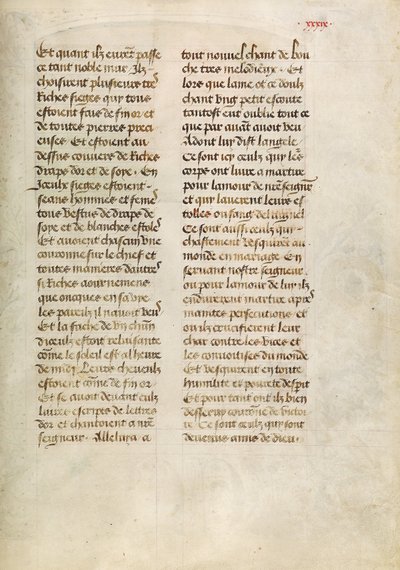 xxxix
Et quant ilz eurent passe
ce tant noble mur Ilz
choisirent plusieurs tres
Riches sieges qui tous
estoient fais de fin or et
de toutes pierres preci
euses Et estoient au
dessus couvers de Riches
draps dor et de soye. En
Iceulx sieges estoient
seans hommes et femes
tous vestus de draps de
soye et de blanches estoles
Et avoient chascun une
couronne sur le chief et
toutes manieres dautres
si Riches aournemens
que oncques en sa vie
les pareilz il navoit veu
Et la face de un chascun
diceulx estoit reluisante
come le soleil est al heure
de midj Leurs cheveulx
estoient come de fin or
Et se avoit devant eulz
livres escrips de lettres
dor et chantoient a nre
seigneur. Alleluya a
tout nouvel chant de bou
che tres melodieux. Et
lors que lame et ce doulz
chant ung petit escoute
tantost eut oublie tout ce
que par avant avoit veu
Adont luy dist langele
Ce sont icy ceulz qui leurs
corps ont livre a martire
pour lamour de nreseigneur
et qui laverent leurs es
tolles ou sang de laignel
Ce sont aussi ceulz qui
chastement vesquirent au
monde en mariage En
servant nostre seigneur
ou pour lamour de lui ilz
endurerent martire apres
maintes persecutions et
ou ilz crucifierent leur
char contre les vices et
les convoitises du monde
Et vesquirent en toute
humilite et povrete desperit
Et pour tant ont ilz bien
desservy couronne de victoi
re Ce sont ceulz qui sont
devenus amis de dieu.